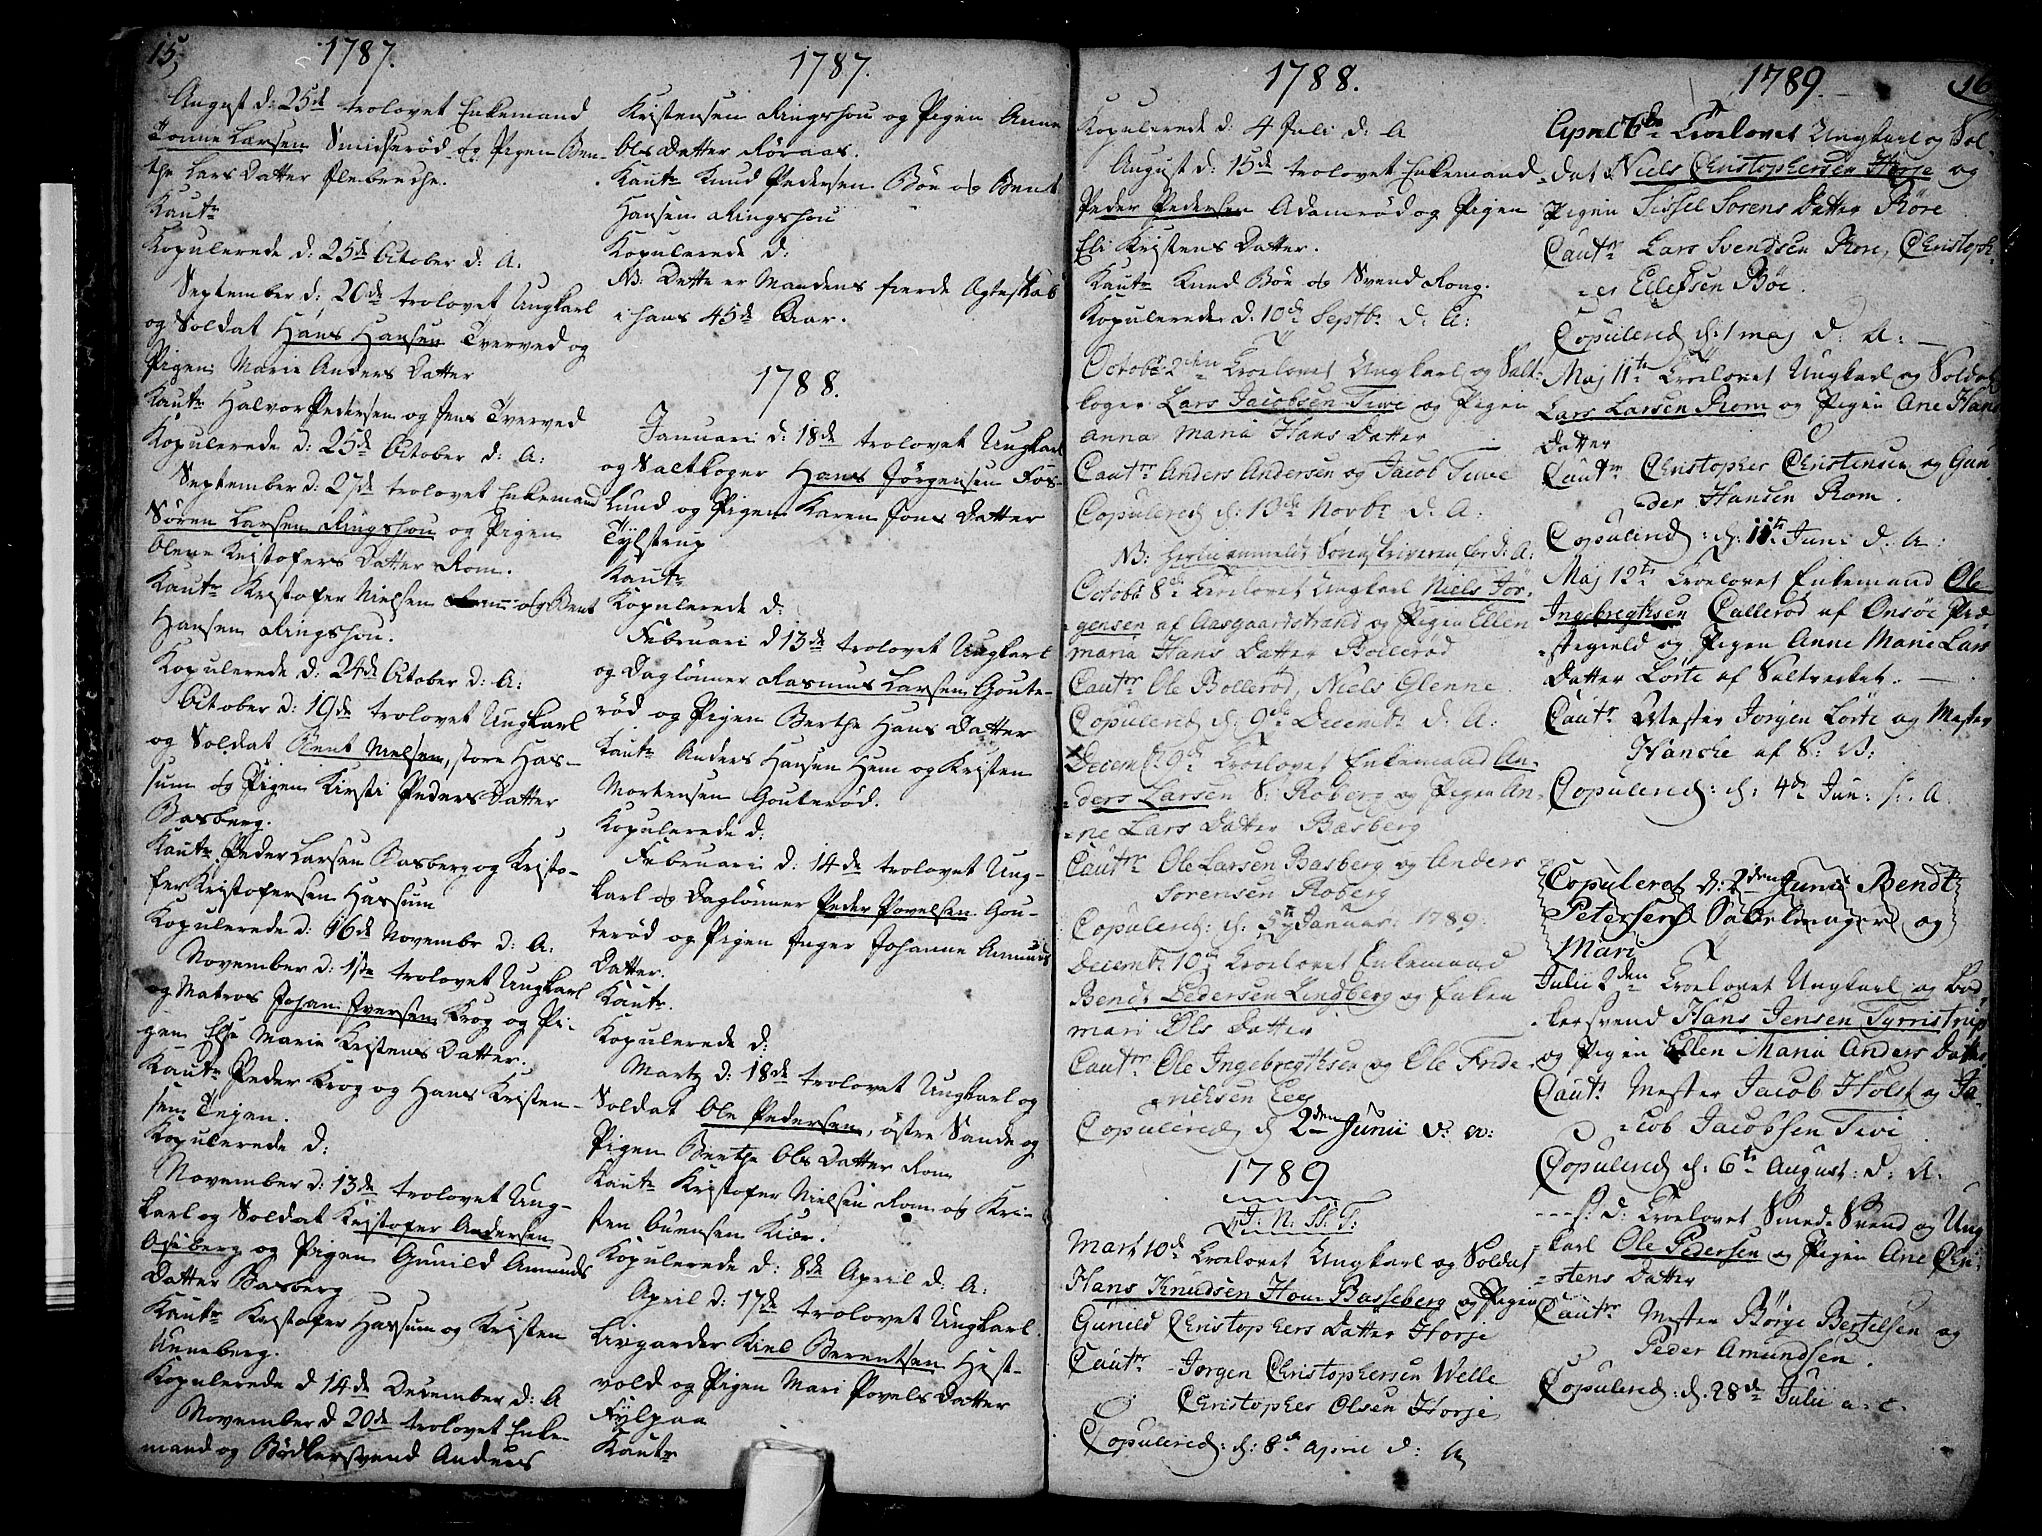 15,
1787.
August d: 25de trolovet Enkemand
Tonne Larsen Smidsrød og Pigen Ben-
the Lars Datter
Kautr
Kopulerede d: 25de October d: A:
September d: 20de trolovet Ungkarl
og Soldat Hans Hansen Tverved og
Pigen Marie Anders Datter
Kautr Halvor Pedersen og Jens Tverved
Kopulerede d: 25de October d: A:
September d: 27de trolovet Enkemand
Søren Larsen Ringshou og Pigen
Olene Kristofers Datter Rom.
Kautr Kristofer Nielsen og Bent
Hansen Ringshou.
Kopulerede d: 24de October d: A:
October d: 19de trolovet Ungkarl
og Soldat Bent Nielsen, store Has-
sum og Pigen Kirsti Peders Datter
Basberg.
Kautr Peder Larsen Basberg og Kristo-
fer Kristofersen Hassum
Kopulerede d: 16de Novembr d: A:
November d: 1ste trolovet Ungkarl
og Matros Johan Iversen Krog og Pi-
gen Else Marie Kristens Datter.
Kautr Peder Krog og Hans Kristen-
sen Teien.
Kopulerede d:
November d: 13de trolovet Ung-
karl og Soldat Kristofer Andersen
Aseberg og Pigen Gunild Amunds
Datter Basberg
Kautr Kristofer Hassum og Kristen
Unneberg.
Kopulerede d 14de December d: A
November d 20de trolovet Enke-
mand og Bødkersvend Anders
1787.
Kristensen Ringshou og Pigen Anne
Ols Datter Røraas.
Kautr Knud Pedersen Bøe og Bent
Hansen Ringshou
Kopulerede d:
NB: Dette er Mandens fierde Egteskab
i hans 45de Aar.
1788.
Januari d: 18de trolovet Ungkarl
og Saltkoger Hans Jørgensen Fos-
lund og Pigen Karen Jons Datter
Tylstrup
Kautr
Kopulerede d:
Februari d 13de trolovet Ungkarl
og Daglønner Rasmus Larsen Goute-
rød og Pigen Berthe Hans Datter
Kautr Anders Hansen Hem og Kristen
Mortensen Gouterød.
Kopulerede d:
Februarii d: 14de trolovet Ung-
karl og Daglønner Peder Povelsen Gou-
terød og Pigen Inger Johanne Amunds
Datter.
Kautr.
Kopulerede d:
Martz d: 18de trolovet Ungkarl og
Soldat Ole Pedersen, østre Sande og
Pigen Berthe Ols Datter Rom
Kautr Kristofer Nielsen Rom og Kri-
sten Evensen Kiær.
Kopulerede d: 8de April d. A:
April d: 17de trolovet Ungkarl
Livgarder Kiel Berentsen Hest-
vold og Pigen Mari Povels Datter
Fylpaa
Kautr
1788.
Kopulerede d: 4 Juli d: A
August d: 15de trolovet Enkemand
Peder Pedersen Adamrød og Pigen
Eli Kristens Datter.
Kautr Knud Bøe og Svend Rong.
Kopulerede d. 10de Septbr d: A:
Octobr 2den Troelovet Ungkarl og Salt-
koger Lars Jacobsen Tewe og Pigen
Anna Maria Hans Datter
Cautr Anders Andersen og Jacob Tewe
Copulered d: 13de Novbr D. A:
NB: Sorenskriveren for d: A:
Octobr 8de Troelovet Ungkarl Niels Jør-
gensen af Aasgaardstrand og Pigen Ellen
Maria Hans Datter Bollerød
Cautr Ole Bollerød, Niels Glenne
Copulered d: 9de Decembr d: A:
Decembr 9de Troelovet Enkemand An-
ders Larsen S: Roberg og Pigen An-
ne Lars Datter Basberg
Cautr Ole Larsen Basberg og Anders
Sørensen Roberg
Copulered: d: 5te Januar: 1789.
Decembr 10de Troelovet Enkemand
Bendt Pedersen Lindberg og Enken
Mari Ols Datter
Cautr Ole Ingebregthsen og Ole Fride-
richsen Eeg
Copulered d 2den Junii d: A:
1789
I: N: St: T:
Mart 10de Troelovet Ungkarl og Soldat
Hans Knudsen Houe Basseberg og Pigen
Gunild Christophers Datter Horje
Cautr Jørgen Christophersen Welle
Christopher Olsen Horje
Copulered: d: 8de April d: A
1789
16
April 6te Troelovet Ungkarl og Sol-
dat Niels Christophersen Horje og
Pigen Sissel Sørens Datter Röre
Cautr Lars Svendsen Rore, Christoph-
er Ellefsen Böe.
Copulered d: 1 Maj D: A:
Maj 11te Troelovet Ungkarl og Soldat
Lars Larsen Rom og Pigen Ane Hans
Datter
Cautr Christopher Christensen og Gun-
der Hansen Rom.
Copulered: d: 11te Juni D: A:
Maj 12te Troelovet Enkemand Ole
Ingebregthsen Callerød af Onsöe Præ-
stegield og Pigen Anne Marie Lars
Datter Lorte af Saltverket.
Cautr Mester Jørgen Lorte og Mester
Hanche af S: V:
Copulered: d: 4de Jun: s: A
Copuleret d: 2den Junii Bendt
Petersen og
Mari
Julii 2den Troelovet Ungkarl og Bød-
kersvend Hans Jensen Tyrristrup
og Pigen Ellen Maria Anders Datter
Cautr Mester Jacob Holst og Ja-
cob Jacobsen Tivi
Copulered d: 6te August: d: A:
s: d: Troelovet Smede Svend og Ung
karl Ole Pedersen og Pigen Ane Chri-
stens Datter
Cautr Mester Börge Bertelsen og
Peder Amundsen.
Copulered: d: 28de Julii a: c.